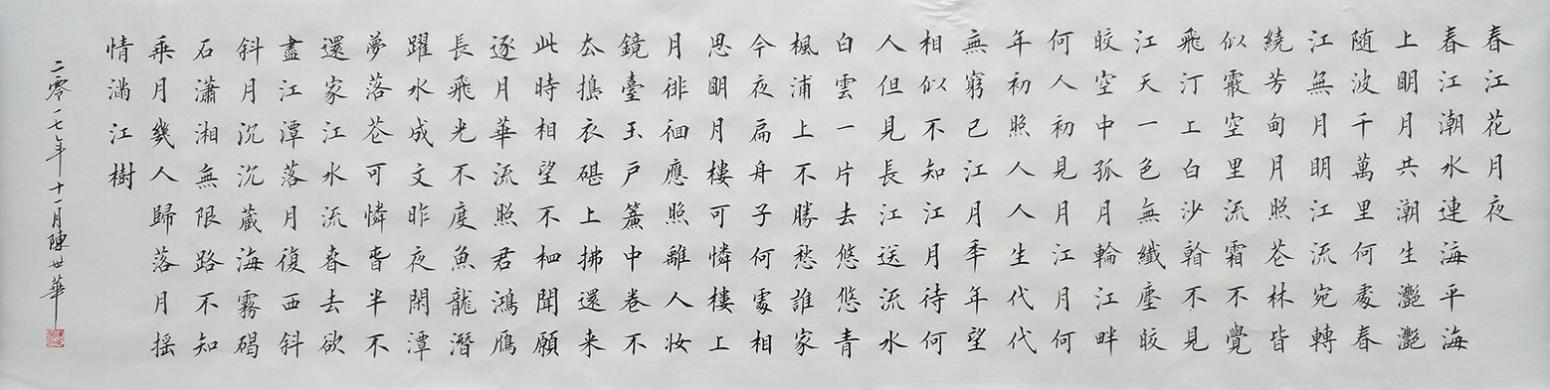 春江花月夜
春江潮水連海平海
上明月共潮生灔灔
随波千萬里何處春
江無月明江流宛轉
繞芳甸月照花林皆
似霰空里流霜不覺
飛汀上白沙看不見
江天一色無纖塵皎
皎空中孤月輪江畔
何人初見月江月何
年初照人人生代代
無窮已江月年年望
相似不知江月待何
人但見長江送流水
白雲一片去悠悠青
楓浦上不勝愁誰家
今夜扁舟子何處相
思明月樓可憐樓上
月徘徊應照離人妝
鏡臺玉戶簾中卷不
去搗衣碪上拂還来
此時相望不相聞願
逐月華流照君鴻鴈
長飛光不度魚龍潛
躍水成文昨夜閑潭
夢落花可憐春半不
還家江水流春去欲
盡江潭落月復西斜
斜月沉沉藏海霧碣
石瀟湘無限路不知
乘月幾人歸落月搖
情滿江樹
二零一七年十一月陳世華